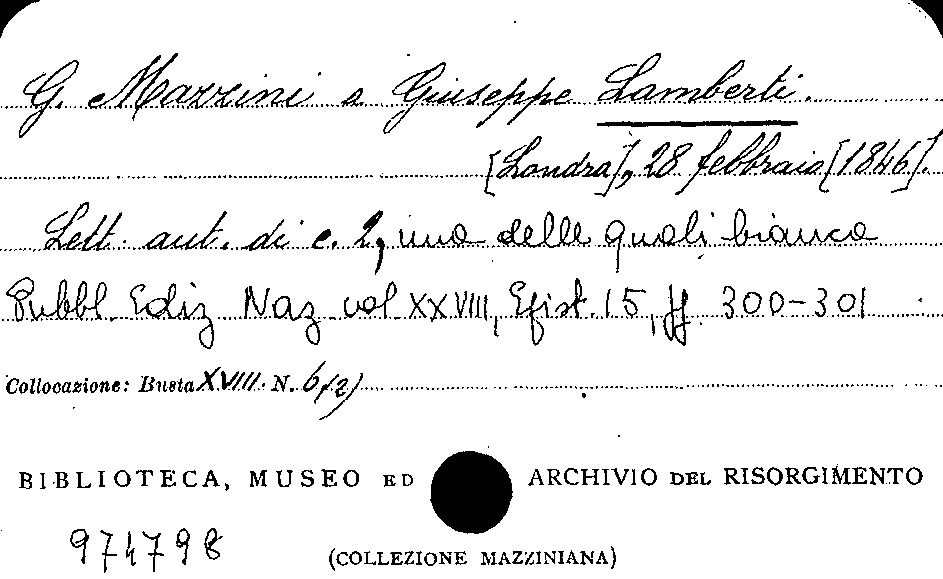 G. Mazzini a Giuseppe Lamberti.
[Londra], 28 febbraio [1846].
Lett. aut. di c. 2, una delle quali bianca
Pubbl. Ediz. Naz. vol. XXVIII, Epist. 15, pp. 300-301
Collocazione: Busta XVIII N. 6/2)
BIBLIOTECA, MUSEO ED ARCHIVIO DEL RISORGIMENTO
974798
(COLLEZIONE MAZZINIANA)